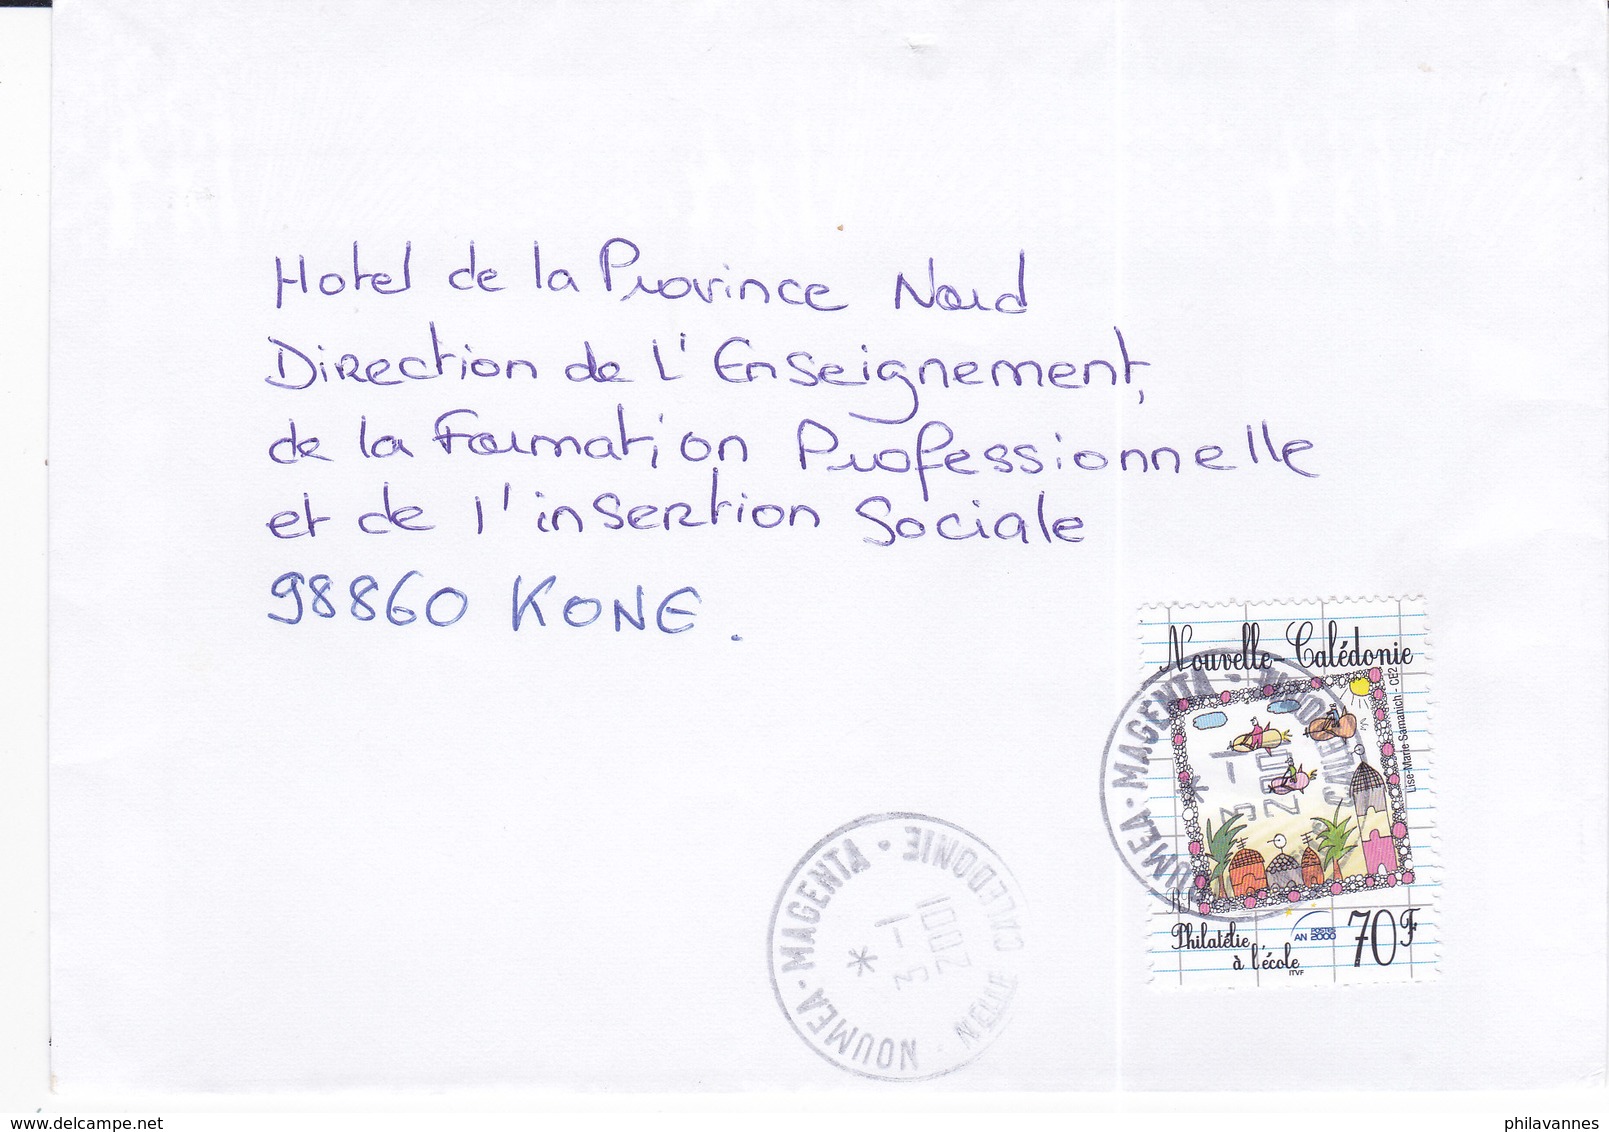 Hotel de la Province Nord
Direction de l'Enseignement,
de la Formation Professionnelle
et de l'insertion Sociale
98860 KONE.
Nouvelle-Calédonie
Lise-Marie Samanich - CE2
Philatélie
à l'école
ITVF
AN POSTES 2000
70F
NOUMEA · MAGENTA
* 3 - 1
2001
NOUMEA · MAGENTA · NELLE CALEDONIE
* 3 - 1
2001
delcampe.net
philavannes